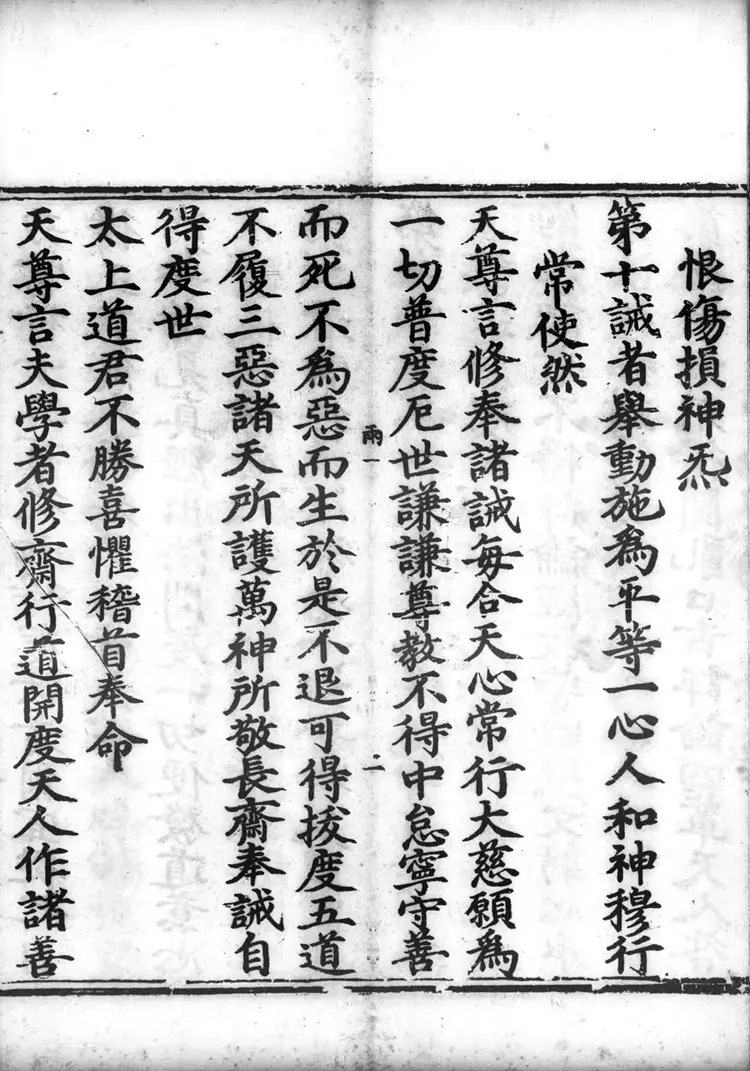 恨傷損神炁
第十誡者舉動施為平等一心人和神穆行
常使然
天尊言修奉諸誡每合天心常行大慈願為
一切普度厄世謙謙尊教不得中怠寧守善
雨一
二
而死不為惡而生於是不退可得拔度五道
不履三惡諸天所護萬神所敬長齋奉誡自
得度世
太上道君不勝喜懼稽首奉命
天尊言夫學者修齋行道開度天人作諸善